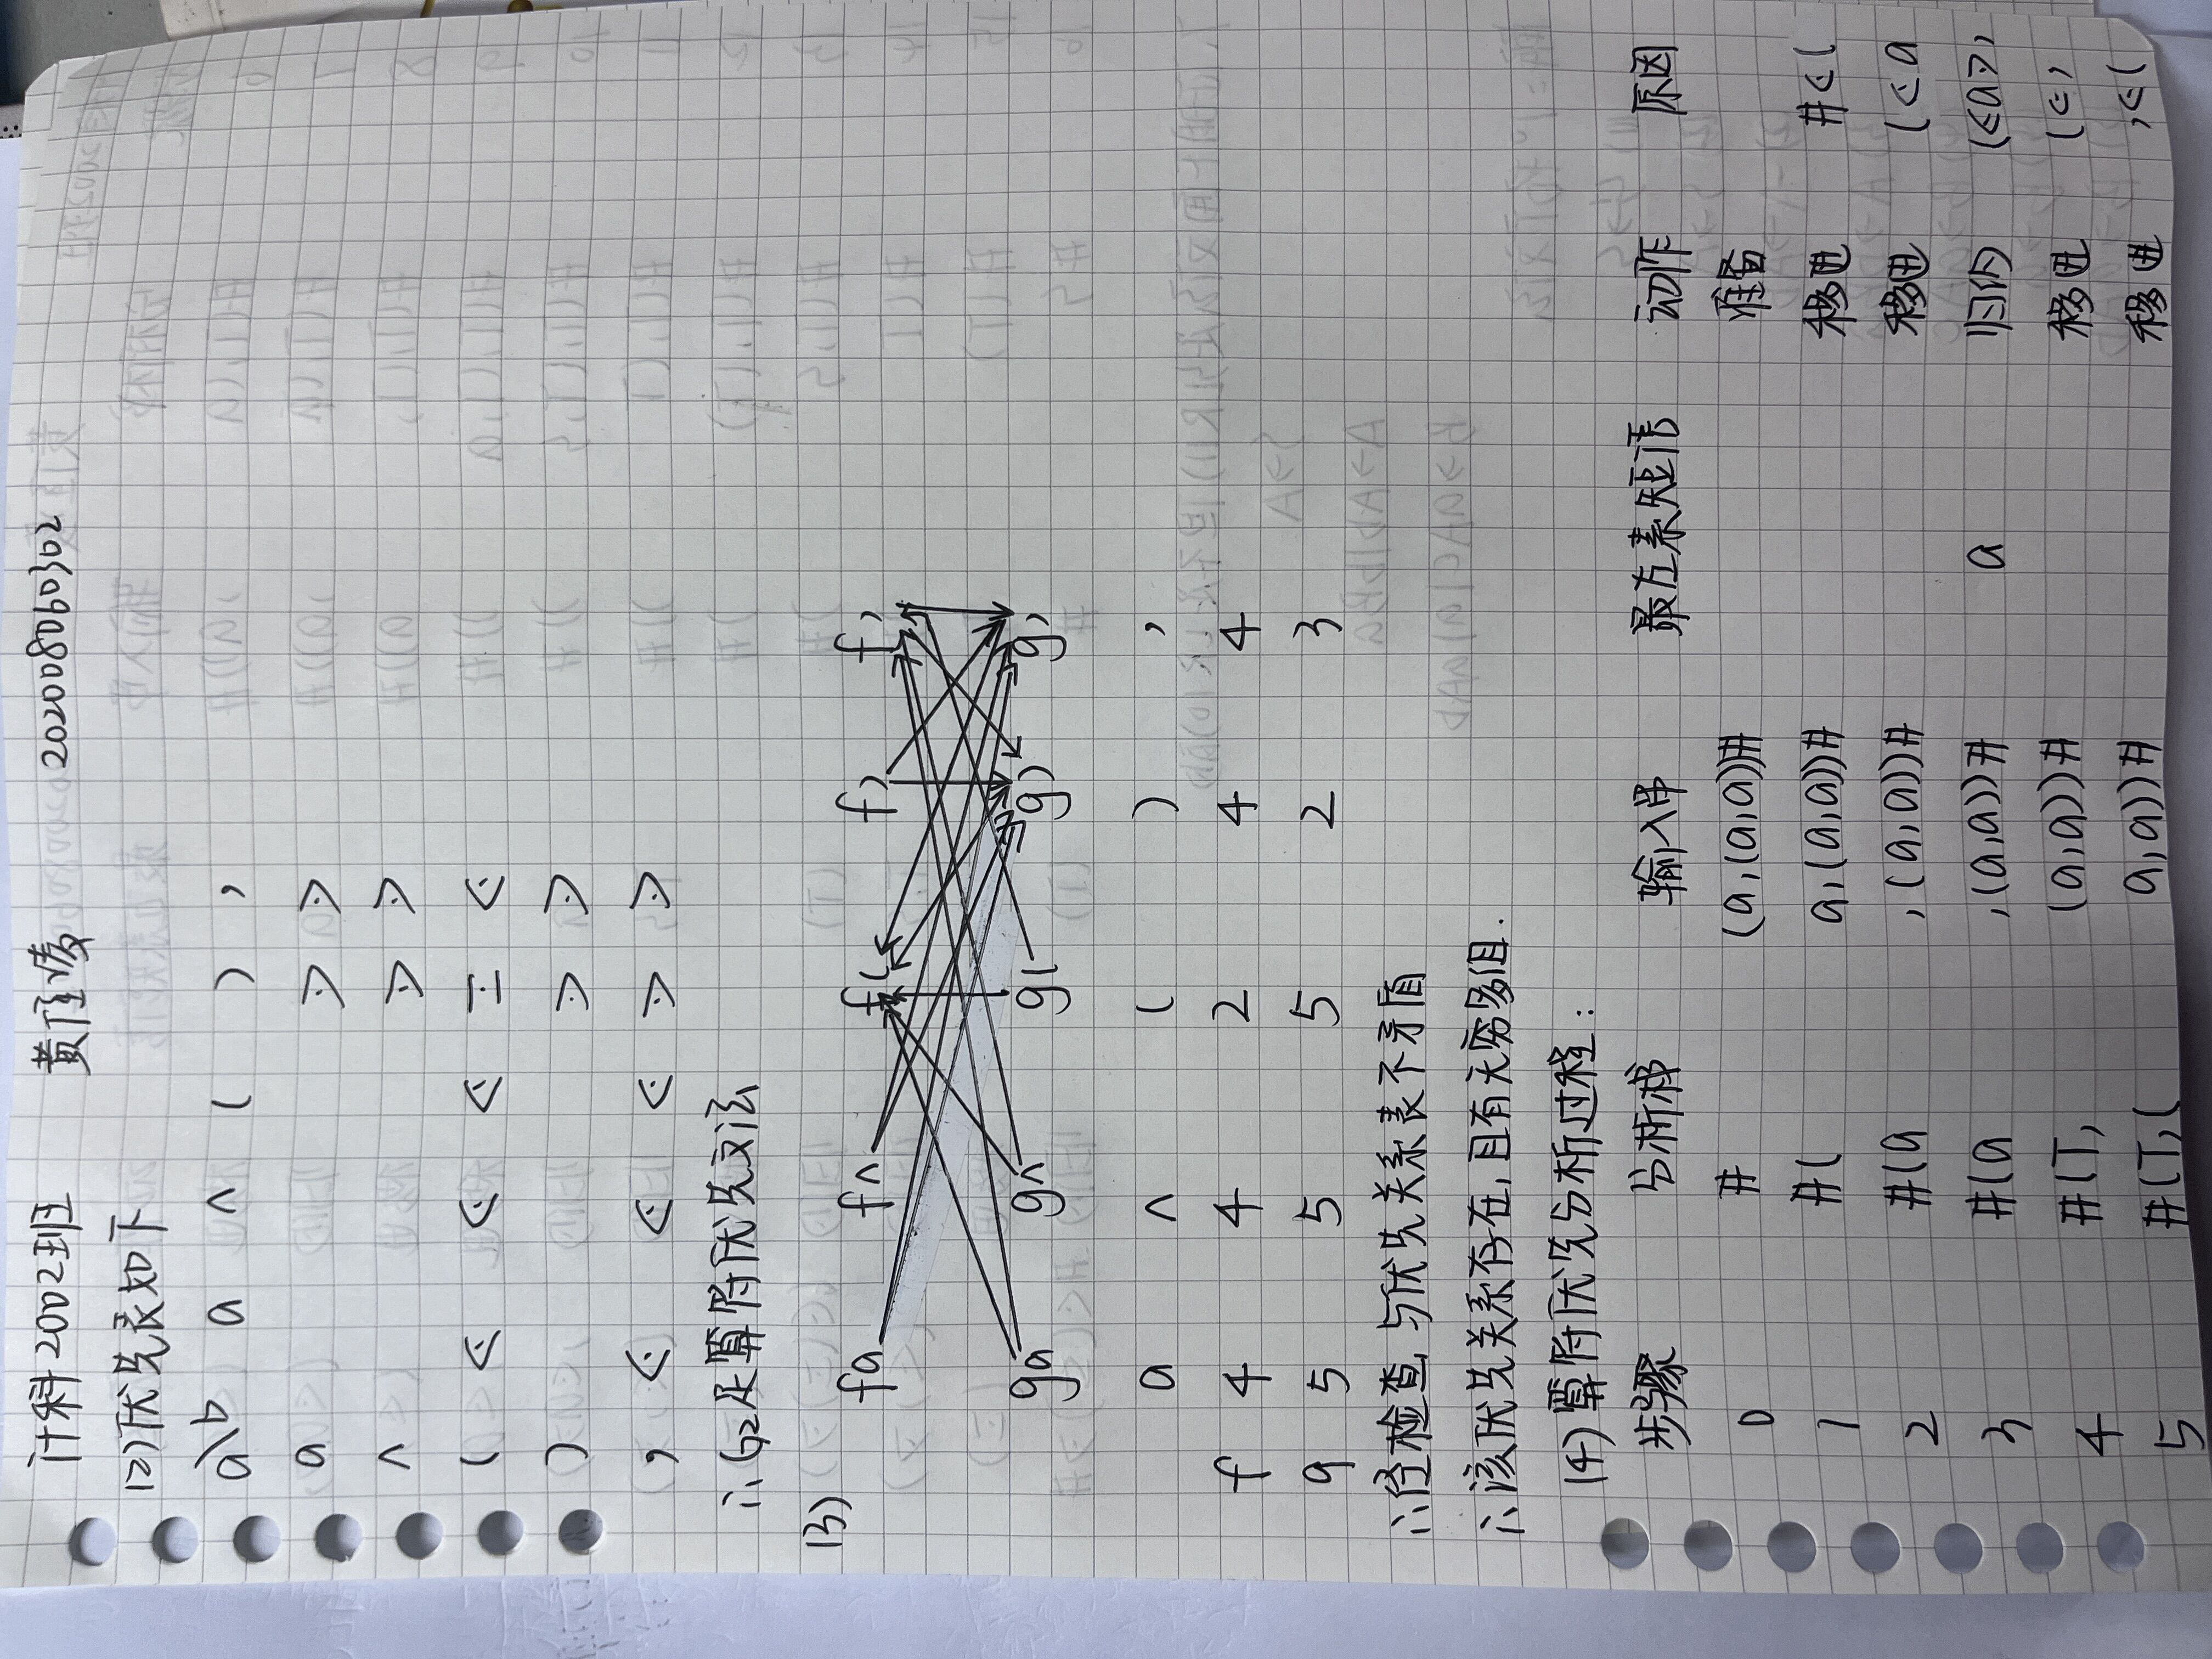 计科2002班 黄 202008060302
(2)优先表如下
a\b a ∧ ( ) ,
a ⋗ ⋗
∧ ⋗ ⋗
( ⋖ ⋖ ⋖ ≡ ⋖
) ⋗ ⋗
, ⋖ ⋖ ⋖ ⋗ ⋗
∴ G2是算符优先文法
(3)
fa f∧ f( f) f,
ga g∧ g( g) g,
a ∧ ( ) ,
f 4 4 2 4 4
g 5 5 5 2 3
∴经检查,与优先关系表不矛盾
∴该优先关系存在,且有无穷多组.
(4)算符优先分析过程:
步骤 分析栈 输入串 最左素短语 动作 原因
0 # (a,(a,a))# 准备
1 #( a,(a,a))# 移进 #⋖(
2 #(a ,(a,a))# 移进 (⋖a
3 #(a ,(a,a))# a 归约 (⋖a⋗,
4 #(T, (a,a))# 移进 (⋖,
5 #(T,( a,a))# 移进 ,⋖(